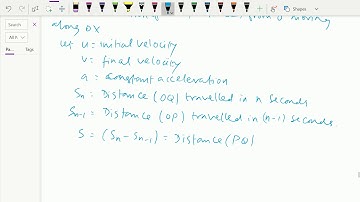 from O moving
along OX
let u = initial velocity
v = final velocity
a = constant acceleration
Sn = Distance (OQ) travelled in n seconds
Sn-1 = Distance (OP) travelled in (n-1) seconds.
S = (Sn - Sn-1) = Distance (PQ)